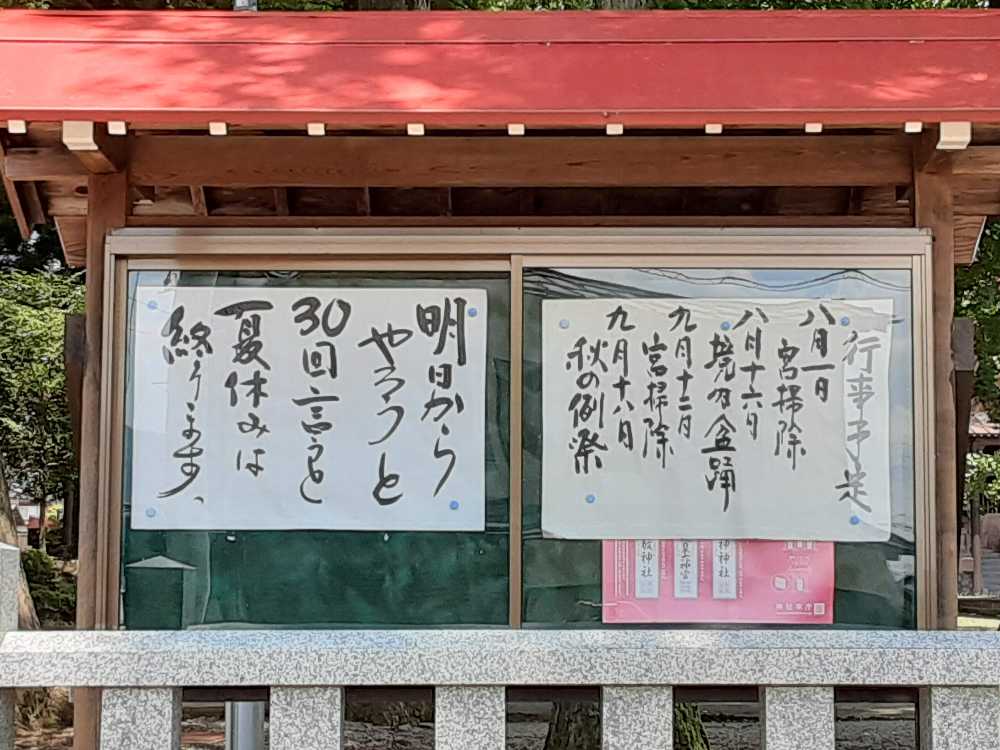 行事予定
八月一日
宮掃除
八月十六日
境内盆踊
九月十二日
宮掃除
九月十八日
秋の例祭
明日から
やろうと
30回言うと
夏休みは
終ります、
神社
神宮
神社
神社本庁